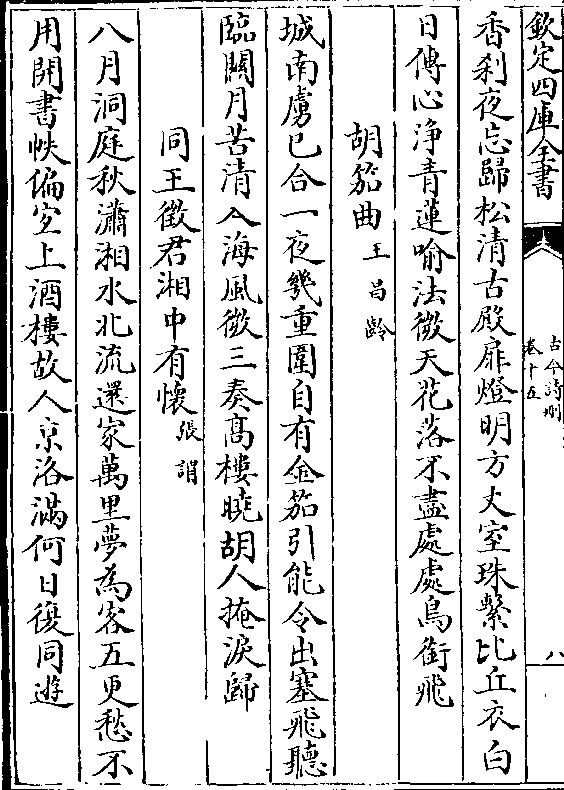 欽定四庫全書
古今詩刪
卷十五
八
香刹夜忘歸松清古殿扉燈明方丈室珠繫比丘衣白
日傳心淨青蓮喻法微天花落不盡處處鳥銜飛
胡笳曲王昌齡
城南虜已合一夜幾重圍自有金笳引能令出塞飛聽
臨關月苦清入海風微三奏高樓曉胡人掩淚歸
同王徵君湘中有懷張謂
八月洞庭秋瀟湘水北流還家萬里夢為客五更愁不
用開書帙偏宜上酒樓故人京洛滿何日復同遊